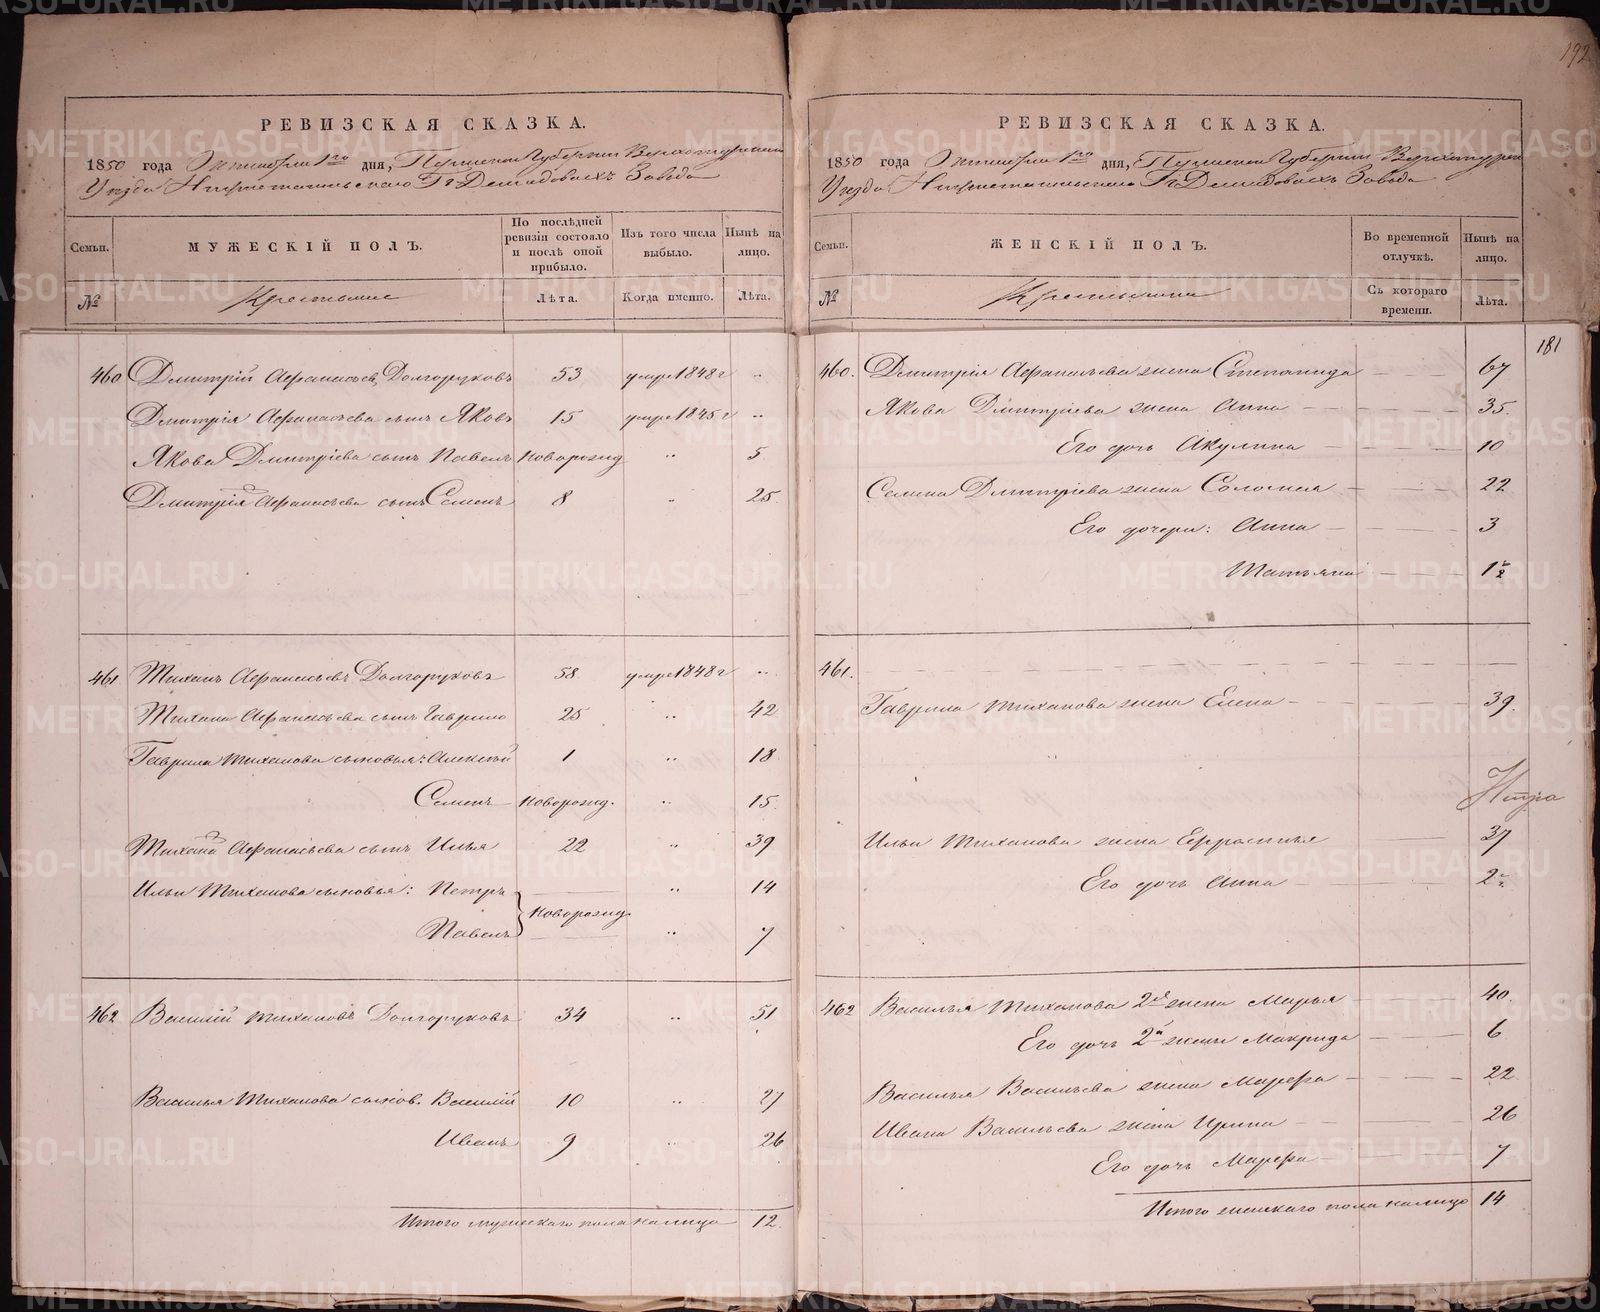 192
РЕВИЗСКАЯ СКАЗКА.
1850 года Октября 1го дня, Пермской Губернии Верхотурскаго
Уезда Нижнетагильскаго Гг Демидовыхъ Завода
Семьи.
МУЖЕСКІЙ ПОЛЪ.
По послѣдней ревизіи состояло и послѣ оной прибыло.
Изъ того числа выбыло.
Нынѣ на лицо.
№
Крестьяне
Лѣта.
Когда именно.
Лѣта.
460 Дмитрій Афанасьевъ Долгоруковъ 53 умре 1848 г "
Дмитрія Афанасьева сынъ Яковъ 15 умре 1845 г "
Якова Дмитріева сынъ Павелъ новорожд " 5
Дмитрія Афанасьева сынъ Семенъ 8 " 25
461 Тиханъ Афанасьевъ Долгоруковъ 58 умре 1848 г "
Тихана Афанасьева сынъ Гаврило 25 " 42
Гаврила Тиханова сыновья: Алексѣй 1 " 18
Семенъ новорожд. " 15
Тихана Афанасьева сынъ Илья 22 " 39
Ильи Тиханова сыновья: Петръ " 14
новорожд.
Павелъ " 7
462 Василій Тихановъ Долгоруковъ 34 " 51
Василья Тиханова сынов. Василій 10 " 27
Иванъ 9 " 26
Итого мужескаго пола налицо 12
РЕВИЗСКАЯ СКАЗКА.
1850 года Октября 1го дня, Пермской Губернии Верхотурск
Уезда Нижнетагильскаго Гг Демидовыхъ Завода
Семьи.
ЖЕНСКІЙ ПОЛЪ.
Во временной отлучкѣ.
Нынѣ на лицо.
№
Крестьянки
Съ котораго времени.
Лѣта.
181
460. Дмитрія Афанасьева жена Степанида 67
Якова Дмитріева жена Анна 35
Его дочь Акулина 10
Семена Дмитріева жена Соломея 22
Его дочери: Анна 3
Татьяна 1½
461.
Гаврила Тиханова жена Елена 39.
Ильи Тиханова жена Ефросинья 37
Его дочь Анна 2
462 Василья Тиханова 2я жена Марья 40
Его дочь 2й жены Макрида 6
Василья Васильева жена Марфа 22
Ивана Васильева жена Ирина 26
Его дочь Марфа 7
Итого женскаго пола налицо 14
METRIKI.GASO-URAL.RU